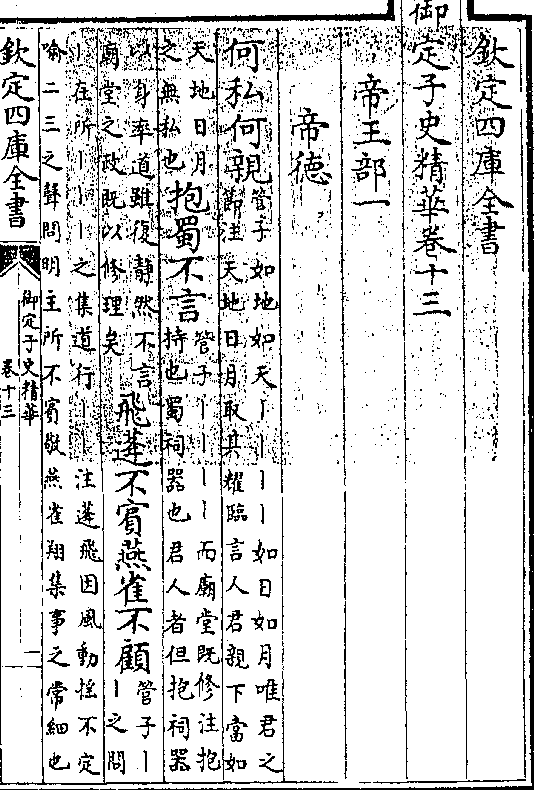 欽定四庫全書
御定子史精華卷十三
帝王部一
帝德
何私何親
管子如地如天丨丨丨丨如日如月唯君之
節注天地日月取其耀臨言人君親下當如
天地日月
之無私也
抱蜀不言
管子丨丨丨丨而廟堂既修注抱
持也蜀祠器也君人者但抱祠器
以身率道雖復靜然不言
廟堂之政既以修理矣
飛蓬不賓燕雀不顧
管子丨
丨之問
丨在所丨丨丨之集道行丨丨注蓬飛因風動搖不定
喻二三之聲問明主所不賓敬燕雀翔集事之常細也
欽定四庫全書
御定子史精華
卷十三
一